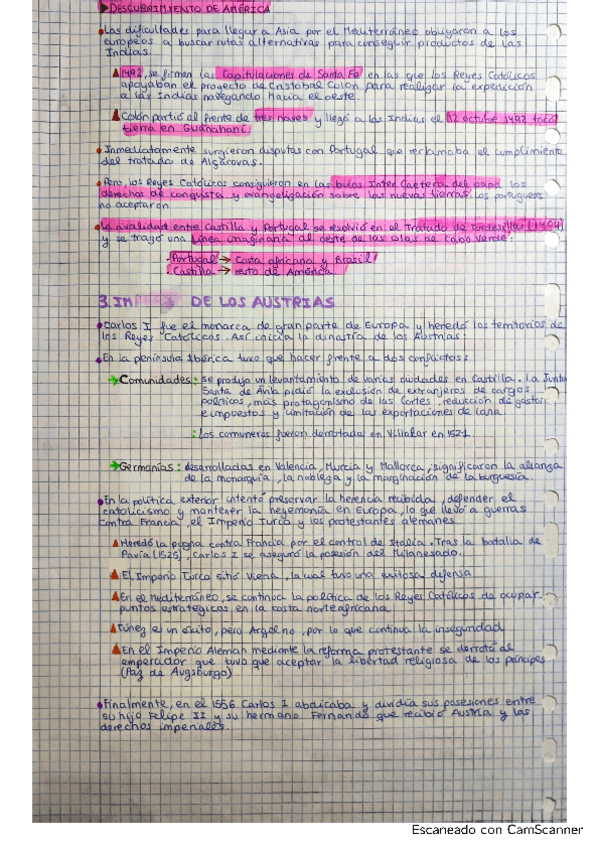 DESCUBRIMIENTO DE AMÉRICA
Las dificultades para llegar a Asia por el Mediterráneo obligaron a los
europeos a buscar rutas alternativas para conseguir productos de las
Indias.
1492, se firmen las Capitulaciones de Santa Fe en las que los Reyes Católicos
apoyaban el proyecto de Cristobal Colón para realizar la expedición
a las Indias navegando hacia el oeste.
Colón partió al frente de tres naves y llegó a las Indias el 12 octubre 1492 tocó
tierra en Guanahaní
Inmediatamente surgieron disputas con Portugal que reclamaba el cumplimiento
del tratado de Algaçovas.
Pero, los Reyes Católicos consiguieron en las bulas Inter Caetera del papa los
derechos de conquista y evangelización sobre las nuevas tierras. los portugueses
no aceptaron
La rivalidad entre Castilla y Portugal se resolvió en el Tratado de Tordesillas (1494)
y se trazó una línea imaginaria al oeste de las islas de Cabo Verde:
Portugal → Costa africana y Brasil
Castilla → resto de América
3. IM DE LOS AUSTRIAS
Carlos I fue el monarca de gran parte de Europa y heredó los territorios de
los Reyes Católicos. Así inicia la dinastía de los Austrias.
En la península Ibérica tuvo que hacer frente a dos conflictos:
→ Comunidades: se produjo un levantamiento de varias ciudades en Castilla. La Junta
Santa de Ávila pidió la exclusión de extranjeros de cargos
políticos, más protagonismo de las Cortes, reducción de gastos
e impuestos y limitación de las exportaciones de lana.
: los comuneros fueron derrotados en Villalar en 1521.
→ Germanías: desarrolladas en Valencia, Murcia y Mallorca, significaron la alianza
de la monarquía, la nobleza y la marginación de la burguesía.
En la política exterior intentó preservar la herencia recibida, defender el
catolicismo y mantener la hegemonía en Europa, lo que llevó a guerras
contra Francia, el Imperio Turco y los protestantes alemanes
Heredó la pugna contra Francia por el control de Italia. Tras la batalla de
Pavía (1525), Carlos I se aseguró la posesión del Milanesado.
El Imperio Turco sitió Viena, la cual tuvo una exitosa defensa
En el Mediterráneo, se continua la política de los Reyes Católicos de ocupar
puntos estratégicos en la costa norteafricana
Túnez es un éxito, pero Argel no, por lo que continua la inseguridad
En el Imperio Alemán mediante la reforma protestante se derrotó al
emperador que tuvo que aceptar la libertad religiosa de los príncipes
(Paz de Augsburgo)
Finalmente, en el 1556 Carlos I abdicaba y dividía sus posesiones entre
su hijo Felipe II y su hermano Fernando que recibió Austria y los
derechos imperiales.
Escaneado con CamScanner